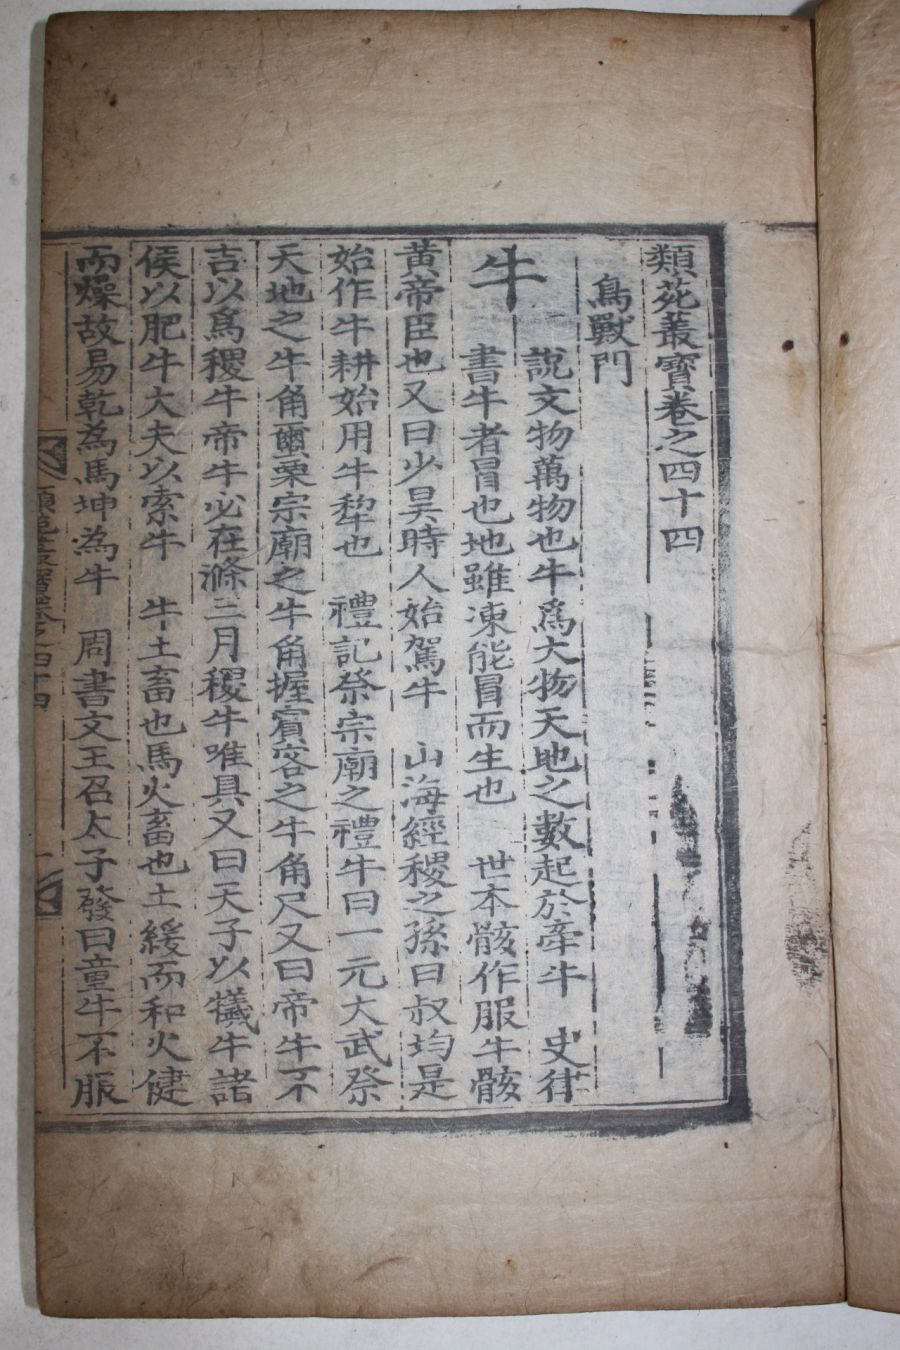 類苑叢寶卷之四十四
鳥獸門
牛
說文物萬物也牛爲大物天地之數起於牽牛　史律
書牛者冒也地雖凍能冒而生也　世本骸作服牛骸
黃帝臣也又曰少昊時人始駕牛　山海經稷之孫曰叔均是
始作牛耕始用牛犂也　禮記祭宗廟之禮牛曰一元大武祭
天地之牛角繭栗宗廟之牛角握賓客之牛角尺又曰帝牛不
吉以爲稷牛帝牛必在滌三月稷牛唯具又曰天子以犧牛諸
侯以肥牛大夫以索牛　牛土畜也馬火畜也土緩而和火健
而燥故易乾爲馬坤爲牛　周書文王召太子發曰童牛不服